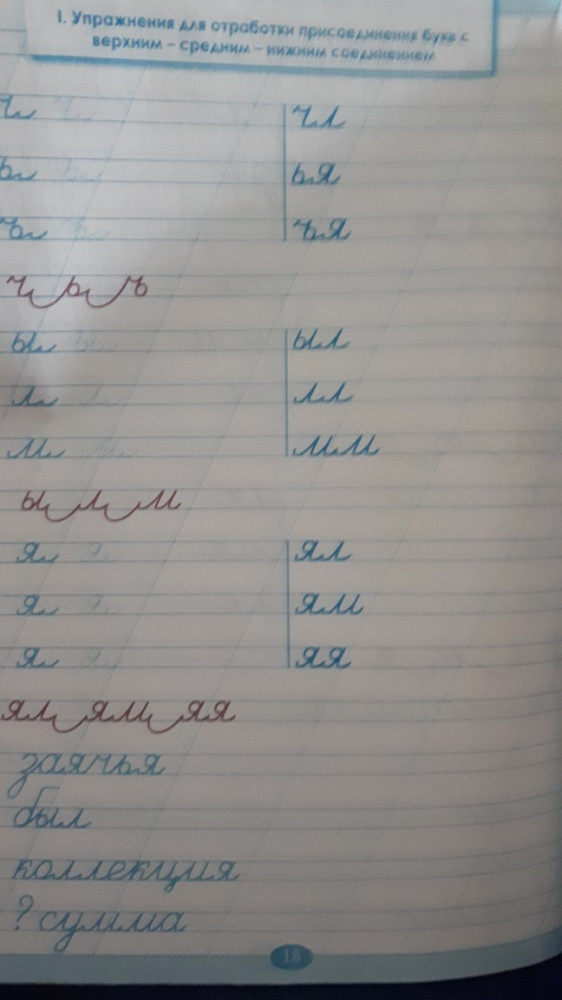 I. Упражнения для отработки присоединения букв с
верхним – средним – нижним соединением
ч ч чл
ь ь ья
ъ ъ ъя
ч ь ъ
ы ы ыл
л л лл
м м мм
ы л м
я я ял
я я ям
я я яя
ял ям яя
заячья
был
коллекция
? сумма
18